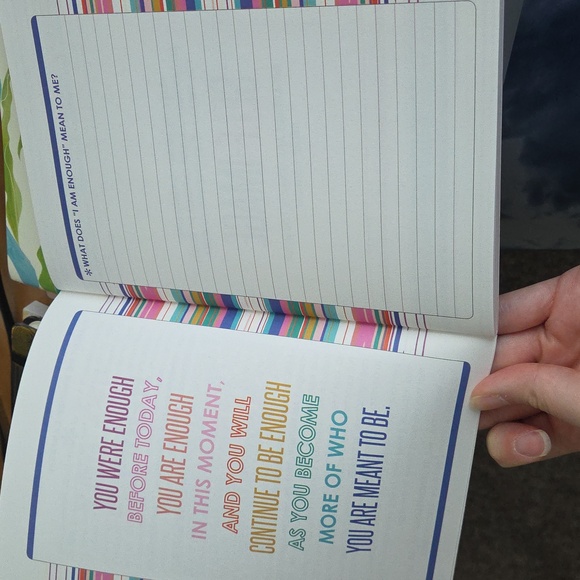 *WHAT DOES "I AM ENOUGH" MEAN TO ME?
YOU WERE ENOUGH
BEFORE TODAY.
YOU ARE ENOUGH
IN THIS MOMENT,
AND YOU WILL
CONTINUE TO BE ENOUGH
AS YOU BECOME
MORE OF WHO
YOU ARE MEANT TO BE.